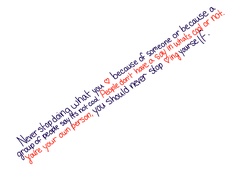 Never stop doing what you ♡ because of someone or because a
group of people say it's not cool. People don't have a say in what's cool or not.
You're your own person, you should never stop ♡ing yourself.